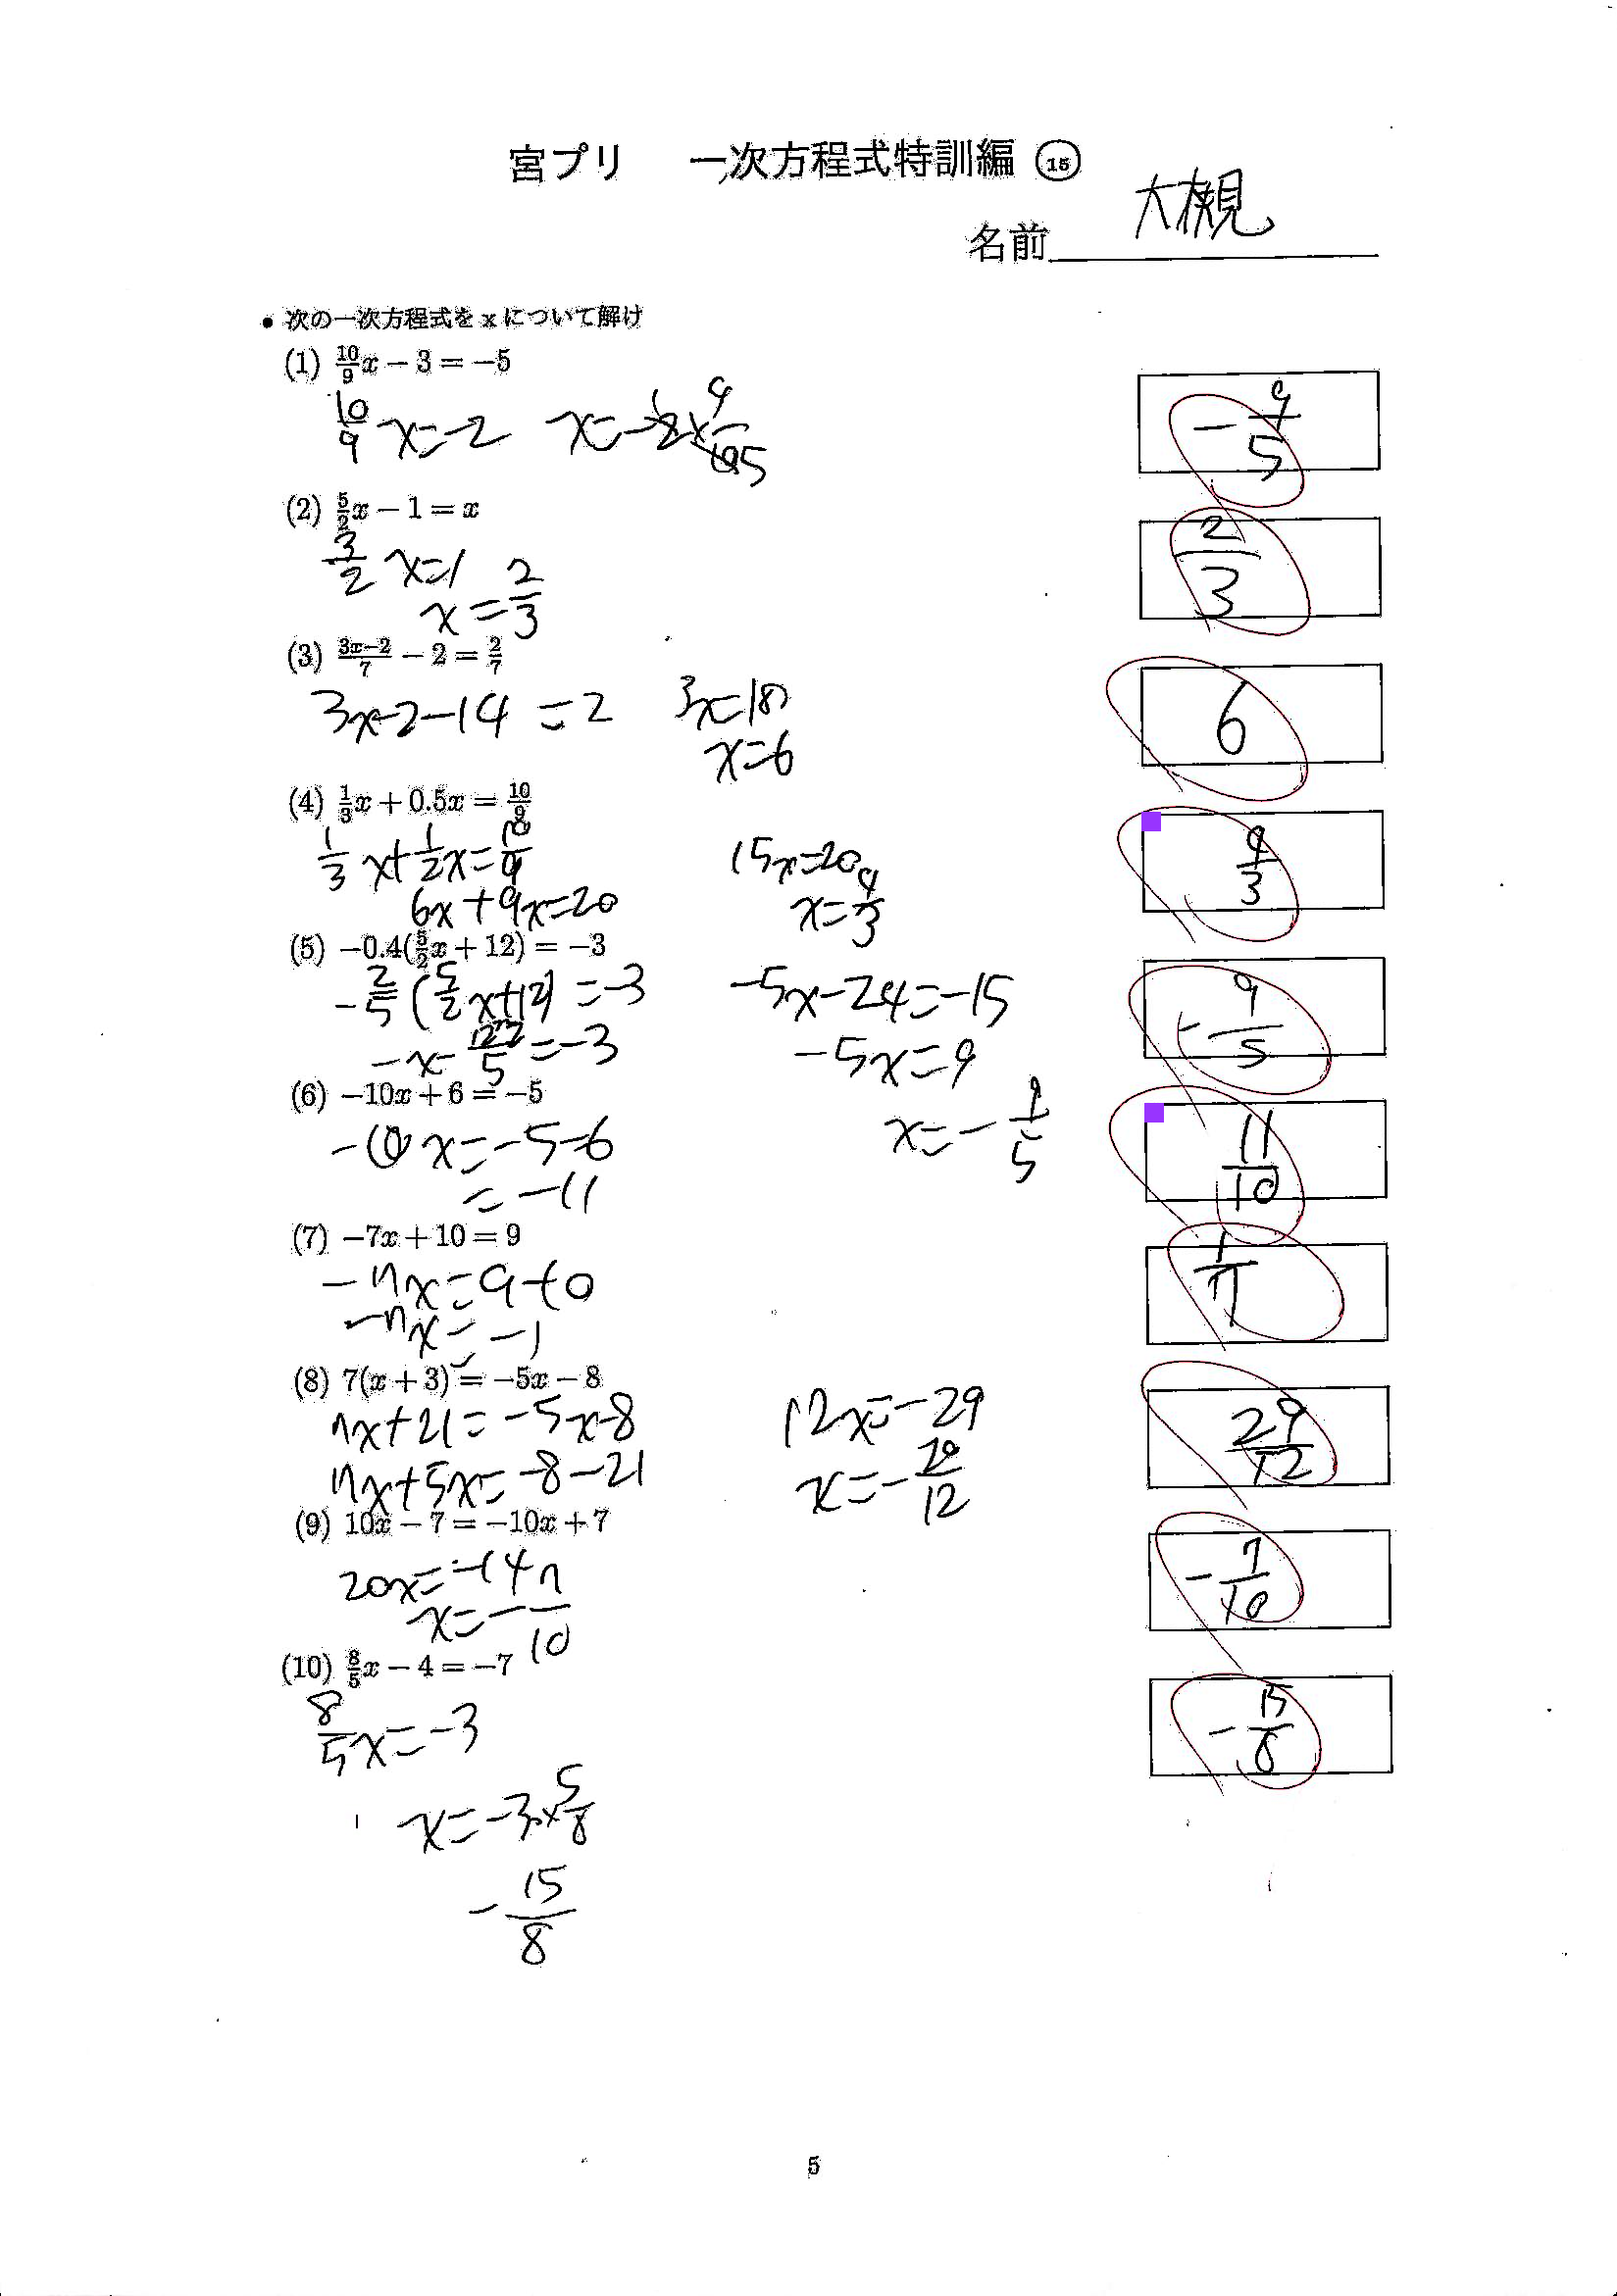 宮プリ 一次方程式特訓編 ⑮
名前 大槻
● 次の一次方程式をxについて解け
(1) 10/9 x − 3 = −5
10/9 x=-2 x=-2×9/10 1 5
-9/5
(2) 5/2 x − 1 = x
3/2 x=1
x=2/3
2/3
(3) (3x−2)/7 − 2 = 2/7
3x-2-14=2 3x=18
x=6
6
(4) 1/3 x + 0.5x = 10/9
1/3 x+1/2 x=10/9 15x=20
6x+9x=20 x=4/3
4/3
(5) −0.4(5/2 x + 12) = −3
-2/5(5/2 x+12)=-3 -5x-24=-15
-x- /5=-3 -5x=9
x=-9/5
-9/5
(6) −10x + 6 = −5
-10x=-5-6
=-11
11/10
(7) −7x + 10 = 9
-7x=9-10
-7x=-1
1/7
(8) 7(x + 3) = −5x − 8
7x+21=-5x-8 12x=-29
7x+5x=-8-21 x=-29/12
29/12
(9) 10x − 7 = −10x + 7
20x=-14
x=-7/10
-7/10
(10) 8/5 x − 4 = −7
8/5 x=-3
x=-3×5/8
-15/8
-15/8
5